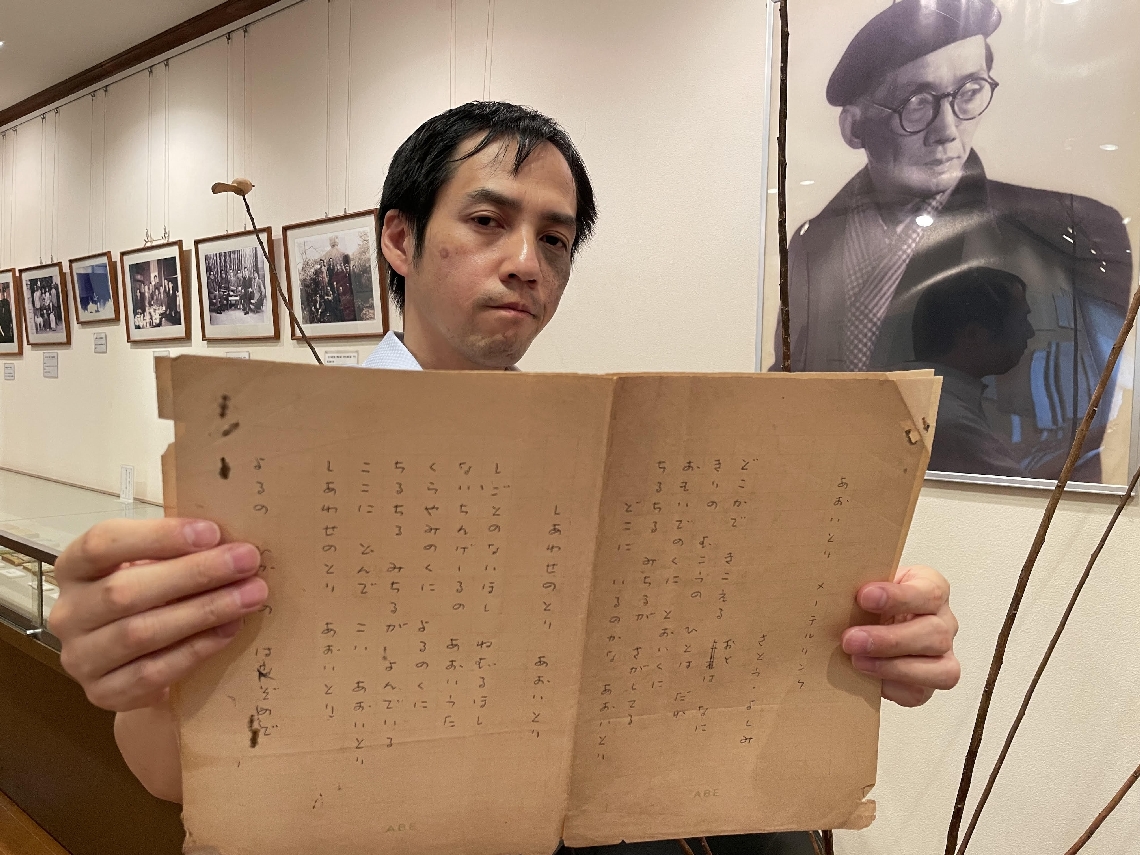 あおいとり
メーテルリンク
さとう・よしみ
どこかで きこえる おと は なに
きりの むこうの ひとは だれ
おもいでのくに とおいくに
ちるちる みちるが さがしてる
どこに いるのかな あおいとり
しあわせのとり あおいとり
しごとのないほし ねむるほし
ないちんげーるの
くらやみのくに よるのくに
ちるちる みちるが よんでいる
ここに とんで こい あおいとり
しあわせのとり あおいとり
よるの はなぞので
ABE
ABE